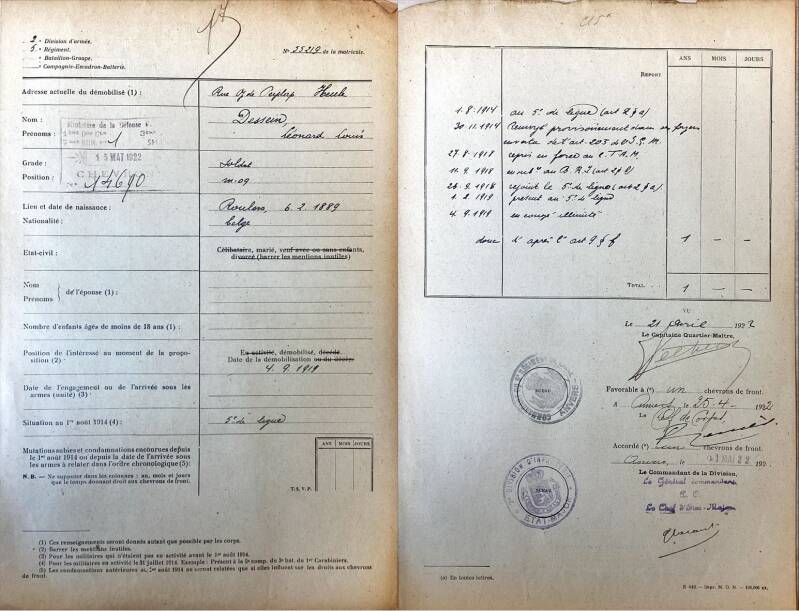 2.e Division d'armée.
5.e Régiment.
.......e Bataillon-Groupe.
.......e Compagnie-Escadron-Batterie.
17
No 35219 de la matricule.
Adresse actuelle du démobilisé (1) : Rue Heule
Nom : Dessein,
Prénoms : Léonard Louis
Ministère de la Défense N.
15 MAI 1922
No 14690
Grade : Soldat
Position : m.og
Lieu et date de naissance : Roulers, 6. 2. 1889
Nationalité : belge
Etat-civil : Célibataire, marié, veuf avec ou sans enfants,
divorcé (barrer les mentions inutiles)
Nom
Prénoms
de l'épouse (1) :
Nombre d'enfants âgés de moins de 18 ans (1) :
Position de l'intéressé au moment de la propo-
sition (2) : En activité, démobilisé, décédé.
Date de la démobilisation ou du décès
4. 9. 1919
Date de l'engagement ou de l'arrivée sous les
armes (unité) (3) :
Situation au 1er août 1914 (4) : 5e de ligne
Mutations subies et condamnations encourues depuis
le 1er août 1914 ou depuis la date de l'arrivée sous
les armes à relater dans l'ordre chronologique (5) :
N. B. — Ne supputer dans les colonnes : an, mois et jours
que le temps donnant droit aux chevrons de front.
ANS MOIS JOURS
T. S. V. P.
(1) Ces renseignements seront donnés autant que possible par les corps.
(2) Barrer les mentions inutiles.
(3) Pour les militaires qui n'étaient pas en activité avant le 1er août 1914.
(4) Pour les militaires en activité le 31 juillet 1914. Exemple : Présent à la 5e comp. du 3e bat. du 1er Carabiniers.
(5) Les condamnations antérieures au 1er août 1914 ne seront relatées que si elles influent sur les droits aux chevrons
de front.
ANS MOIS JOURS
REPORT
1. 8. 1914 au 5e de ligne (art 2 § a)
30. 11. 1914 Renvoyé provisoirement dans ses foyers
en vertu de l'art. 203
27. 8. 1918 repris en force au C. T. A. M.
11. 9. 1918 au B. R. I (art 2 § )
26. 9. 1918 rejoint le 5e de ligne (art 2 § a).
1. 2. 1919 présent au 5e de ligne
4. 9. 1919 en congé illimité
donc d'après l'art 9 § f 1 — —
TOTAL 1 — —
VU
Le 21 avril 1922
Le Capitaine Quartier-Maître,
Favorable à (a) un chevrons de front.
A Anvers, le 25-4- 1922
Le Chef de Corps,
Accordé (a) un chevrons de front.
Anvers, le 1 MAI 22 192
Le Commandant de la Division,
Le Général commandant
Le Chef d'Etat-Major
ANVERS
DIVISION D'INFANTERIE
ETAT-MAJOR
(a) En toutes lettres.